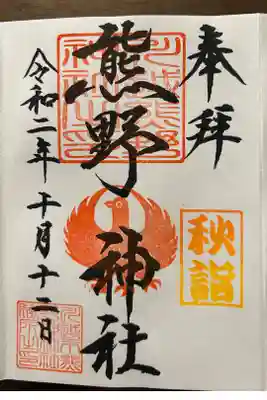 奉拝
秋詣
熊野神社
令和二年十月十二日